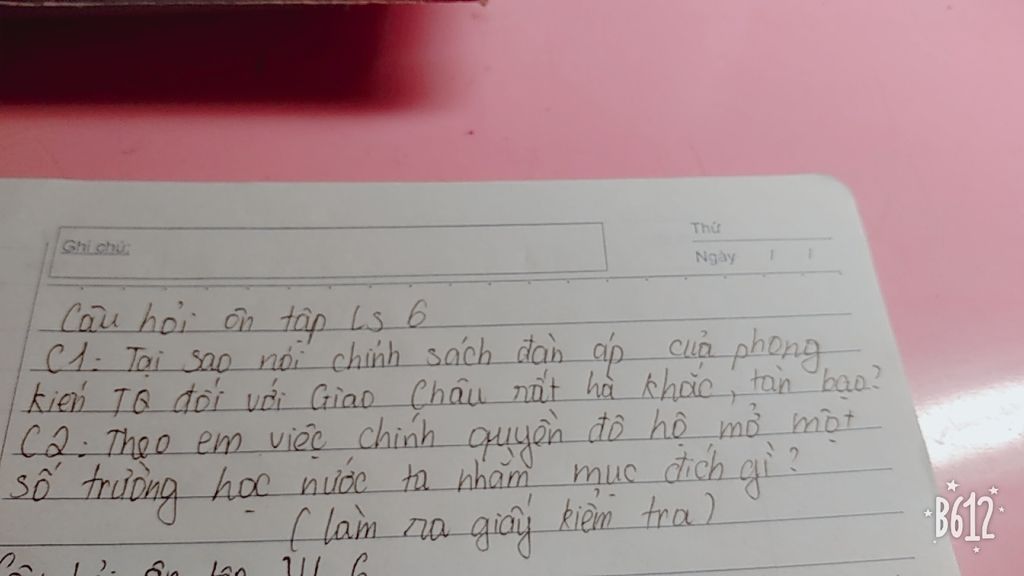 Ghi chú:
Thứ
Ngày / /
Câu hỏi ôn tập LS 6
C1: Tại sao nói chính sách đàn áp của phong
kiến TQ đối với Giao Châu rất hà khắc, tàn bạo?
C2: Theo em việc chính quyền đô hộ mở một
số trường học nước ta nhằm mục đích gì?
(làm ra giấy kiểm tra)
B612